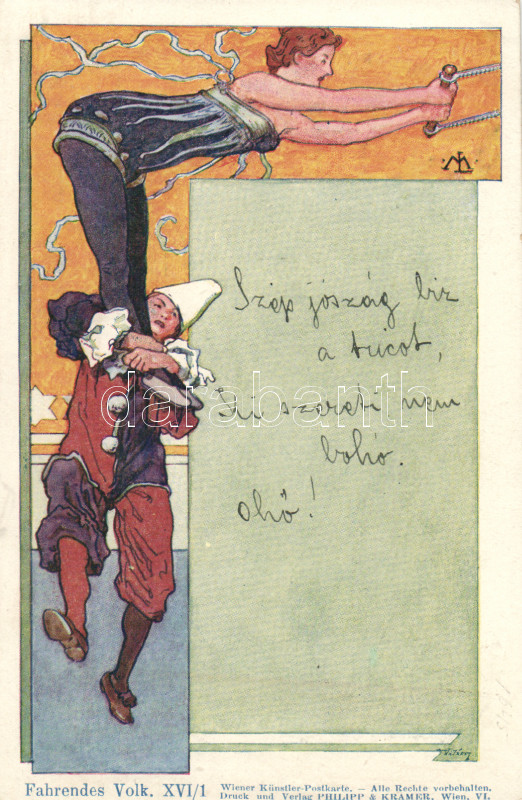 Szép jószág biz
a tricot,
Ki szereti nem
bohó.
Ohó!
darabanth
Fahrendes Volk. XVI/1
Wiener Künstler-Postkarte. – Alle Rechte vorbehalten.
Druck und Verlag PHILIPP & KRAMER, Wien, VI.